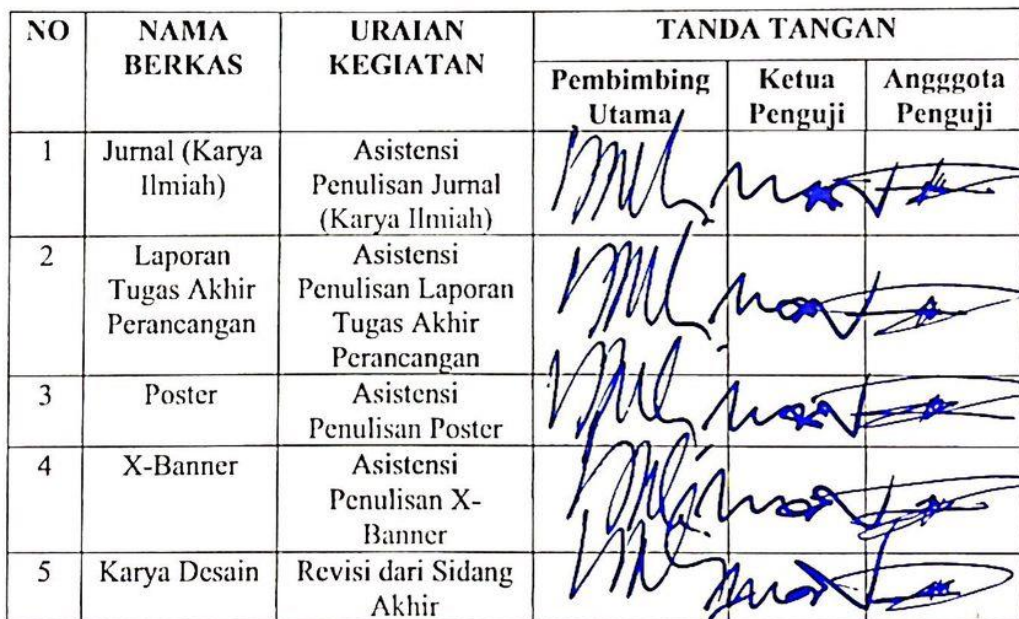 NO NAMA BERKAS URAIAN KEGIATAN TANDA TANGAN
Pembimbing Utama Ketua Penguji Angggota Penguji
1 Jurnal (Karya Ilmiah) Asistensi Penulisan Jurnal (Karya Ilmiah)
2 Laporan Tugas Akhir Perancangan Asistensi Penulisan Laporan Tugas Akhir Perancangan
3 Poster Asistensi Penulisan Poster
4 X-Banner Asistensi Penulisan X-Banner
5 Karya Desain Revisi dari Sidang Akhir